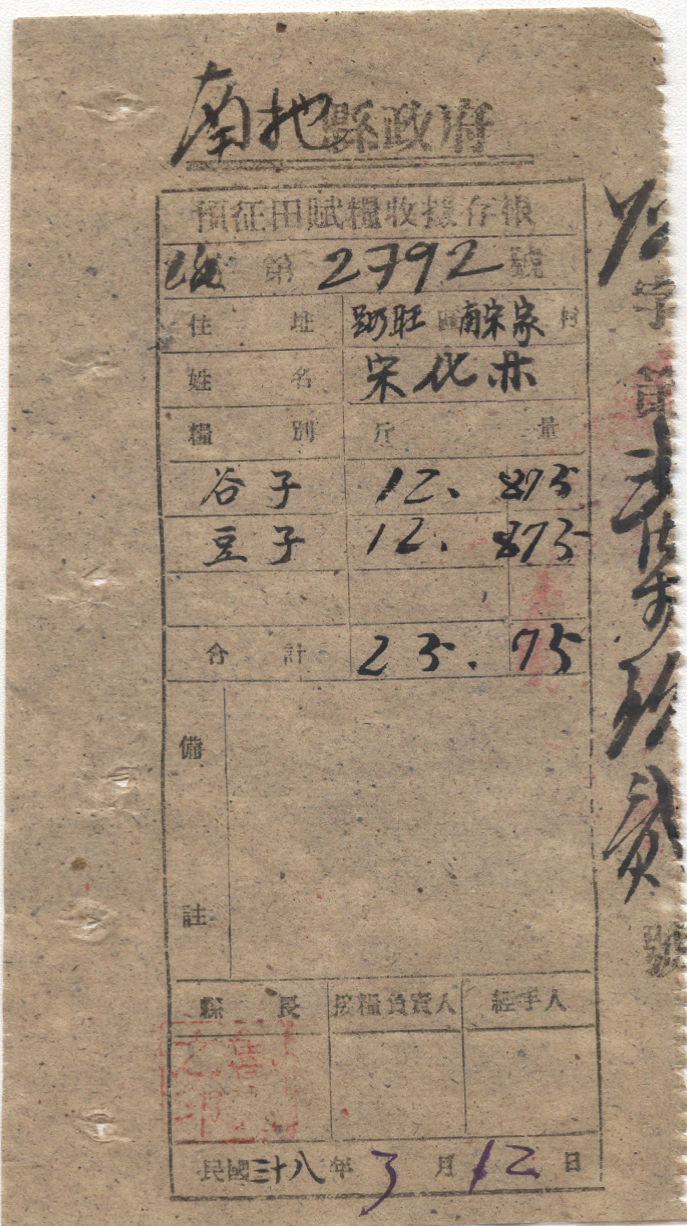 南地縣政府
預征田賦糧收據存根
第2792號
住址 區南宋家村
姓名 宋化
糧別 斤量
谷子 12.875
豆子 12.875
合計 25.75
備註
縣長 接糧負責人 經手人
之印
民國三十八年3月12日
字第
貳號